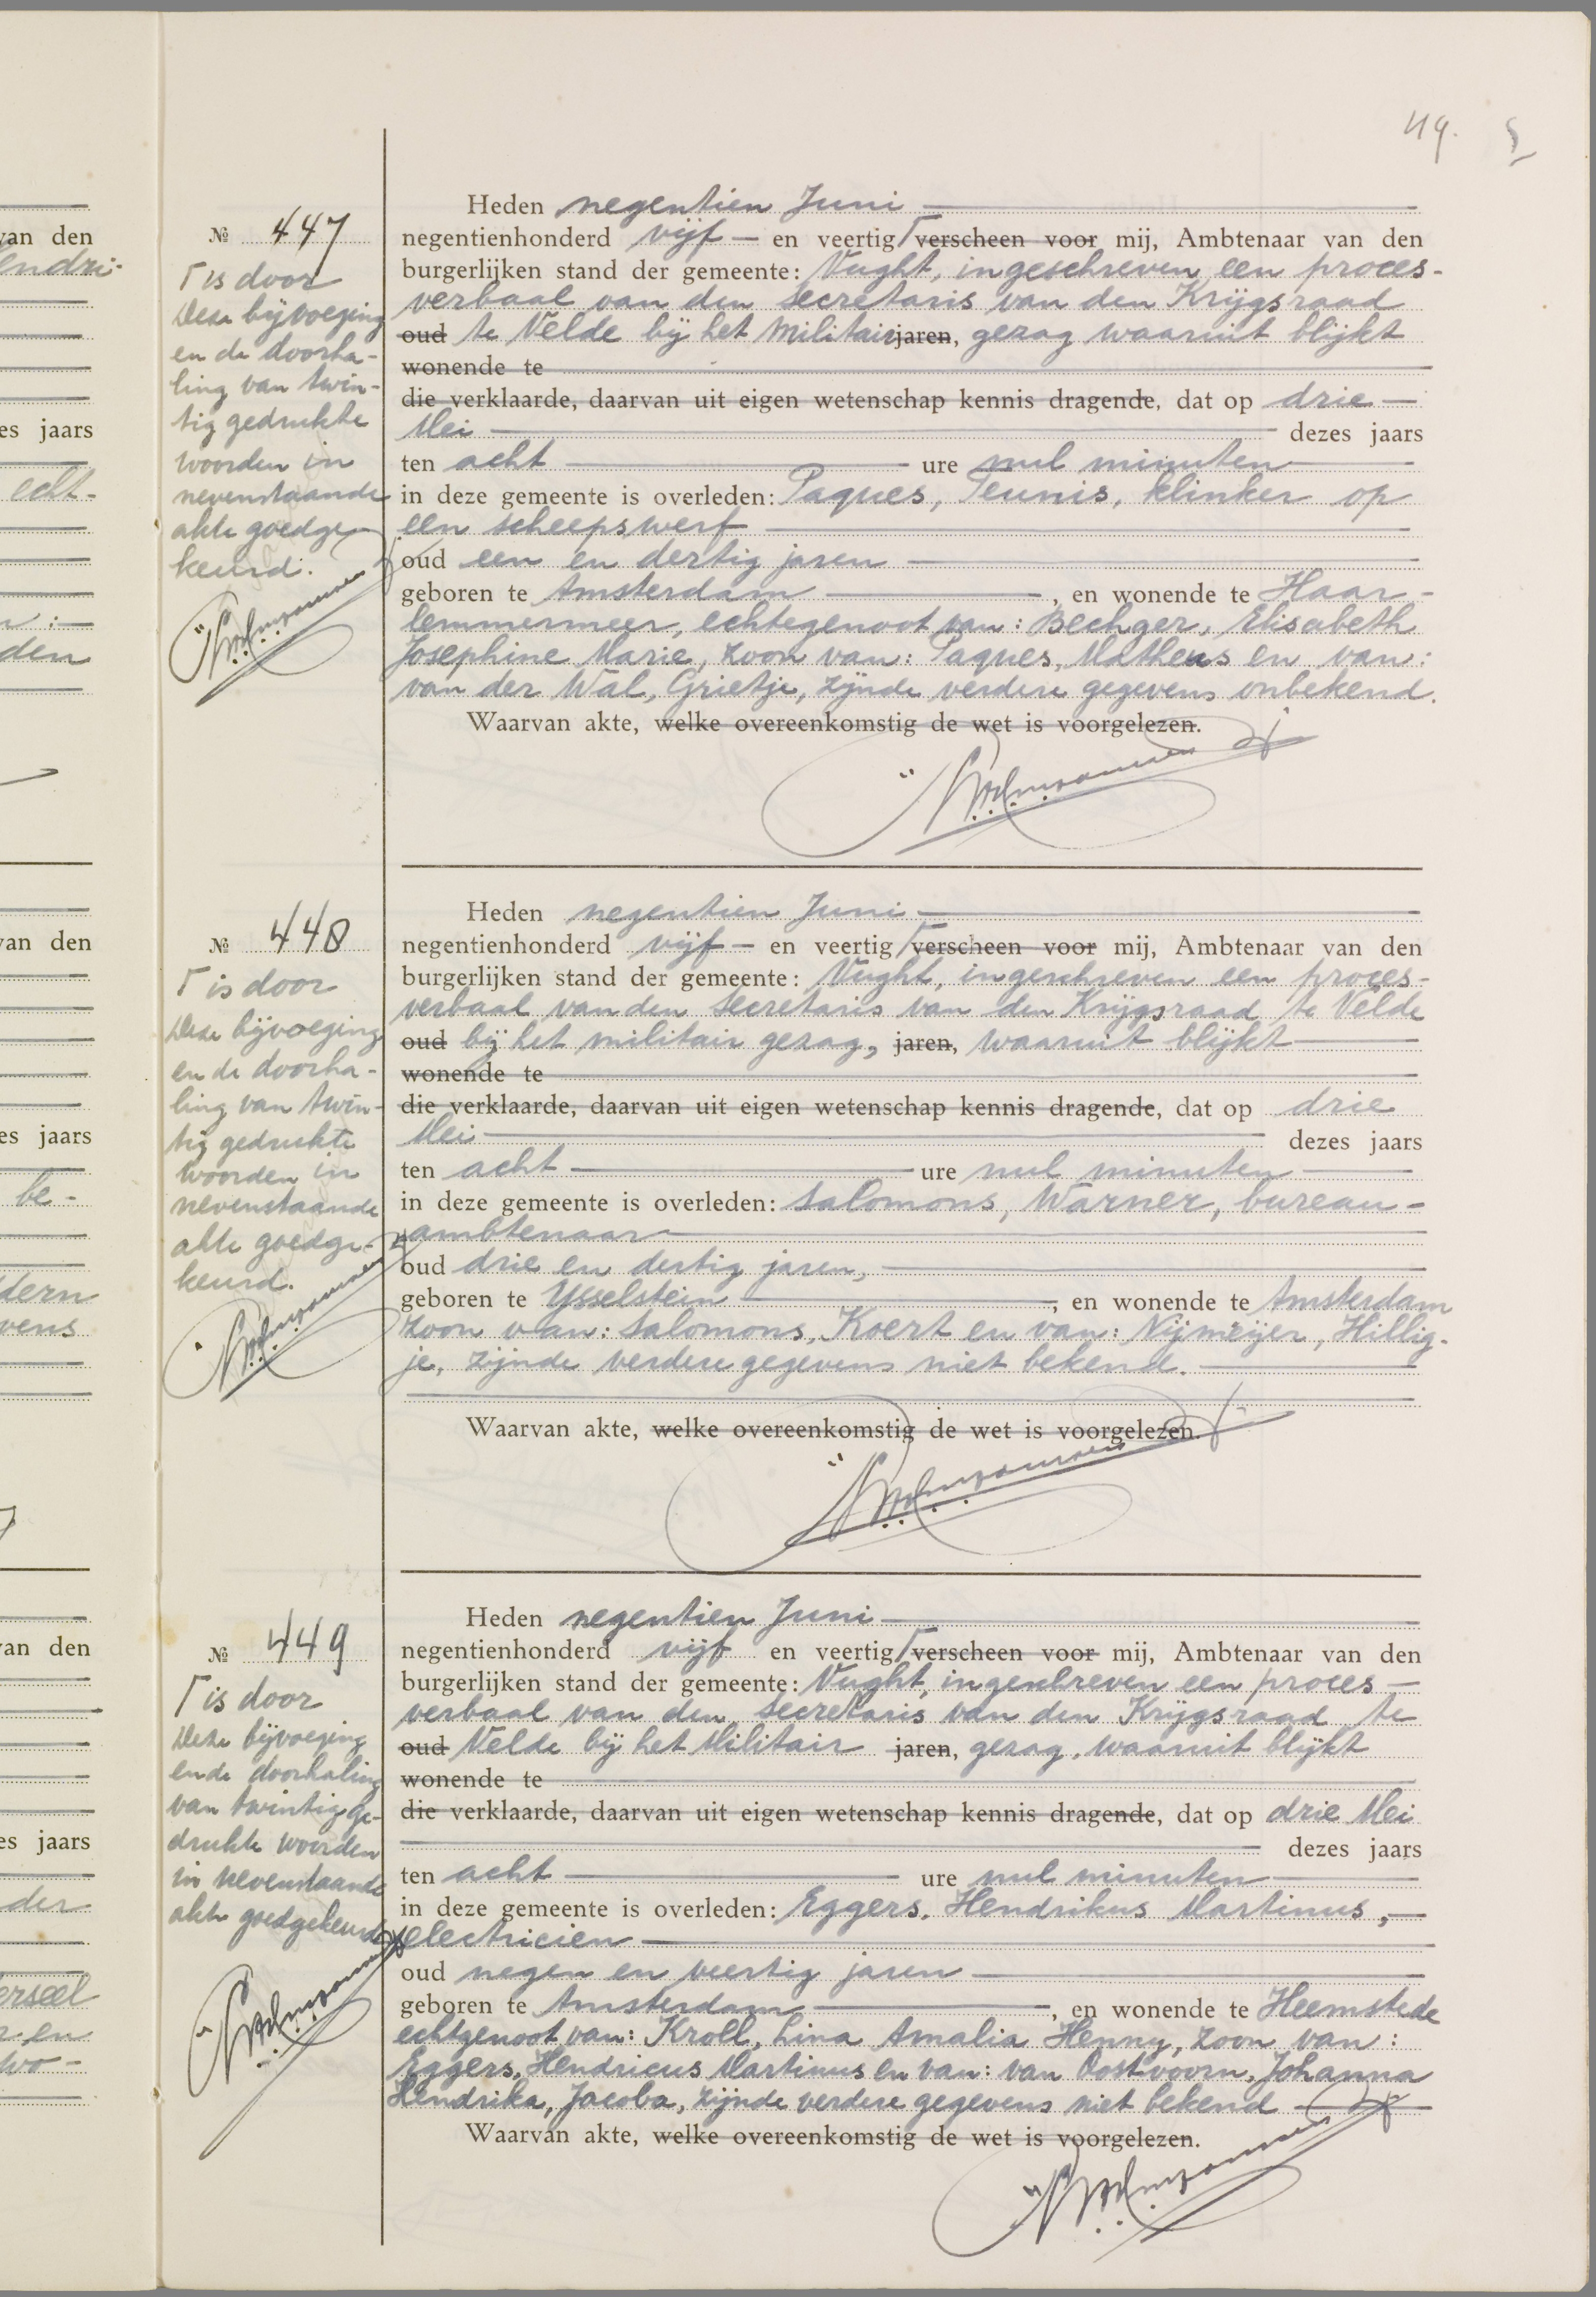 119.
№ 447
Γ is door
deze bijvoeging
en de doorha-
ling van twin-
tig gedrukte
woorden in
nevenstaande
akte goedge-
keurd.
Heden negentien Juni
negentienhonderd vijf en veertig Γ verscheen voor mij, Ambtenaar van den
burgerlijken stand der gemeente: Vught, ingeschreven een proces-
verbaal van den secretaris van den Krijgsraad
oud te Velde bij het Militair jaren, gezag waaruit blijkt
wonende te
die verklaarde, daarvan uit eigen wetenschap kennis dragende, dat op drie
Mei dezes jaars
ten acht ure nul minuten
in deze gemeente is overleden: Paques, Teunis, klinker op
een scheepswerf
oud een en dertig jaren
geboren te Amsterdam, en wonende te Haar-
lemmermeer, echtegenoot van: Bechger, Elisabeth
Josephine Marie, zoon van: Paques, Matheus en van:
van der Wal, Grietje, zijnde verdere gegevens onbekend.
Waarvan akte, welke overeenkomstig de wet is voorgelezen.
№ 448
Γ is door
deze bijvoeging
en de doorha-
ling van twin-
tig gedrukte
woorden in
nevenstaande
akte goedge-
keurd.
Heden negentien Juni
negentienhonderd vijf en veertig Γ verscheen voor mij, Ambtenaar van den
burgerlijken stand der gemeente: Vught, ingeschreven een proces-
verbaal van den secretaris van den Krijgsraad te Velde
oud bij het militair gezag, jaren, waaruit blijkt
wonende te
die verklaarde, daarvan uit eigen wetenschap kennis dragende, dat op drie
Mei dezes jaars
ten acht ure nul minuten
in deze gemeente is overleden: Salomons, Warner, bureau-
ambtenaar
oud drie en dertig jaren,
geboren te Ysselstein, en wonende te Amsterdam
zoon van: Salomons, Koert en van: Nijmeijer, Hillig-
je, zijnde verdere gegevens niet bekend.
Waarvan akte, welke overeenkomstig de wet is voorgelezen.
№ 449
Γ is door
deze bijvoeging
en de doorhaling
van twintig ge-
drukte woorden
in nevenstaande
akte goedgekeurd
Heden negentien Juni
negentienhonderd vijf en veertig Γ verscheen voor mij, Ambtenaar van den
burgerlijken stand der gemeente: Vught, ingeschreven een proces-
verbaal van den secretaris van den Krijgsraad te
oud Velde bij het Militair jaren, gezag, waaruit blijkt
wonende te
die verklaarde, daarvan uit eigen wetenschap kennis dragende, dat op drie Mei
dezes jaars
ten acht ure nul minuten
in deze gemeente is overleden: Eggers, Hendrikus Martinus,
electricien
oud negen en veertig jaren
geboren te Amsterdam, en wonende te Heemstede
echtgenoot van: Kroll, Lina Amalia Henny, zoon van:
Eggers, Hendricus Martinus en van: van Oostvoorn, Johanna
Hendrika, Jacoba, zijnde verdere gegevens niet bekend
Waarvan akte, welke overeenkomstig de wet is voorgelezen.